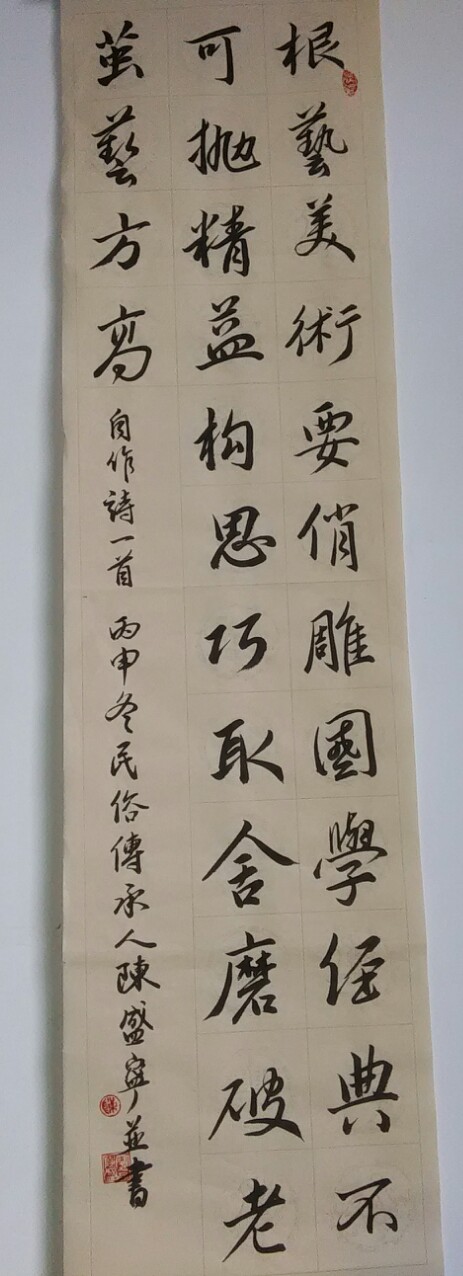 根藝美術要俏雕國學經典不
可抛精益构思巧取舍磨破老
茧藝方高 自作詩一首 丙申冬民俗傳承人陳盛寧並書